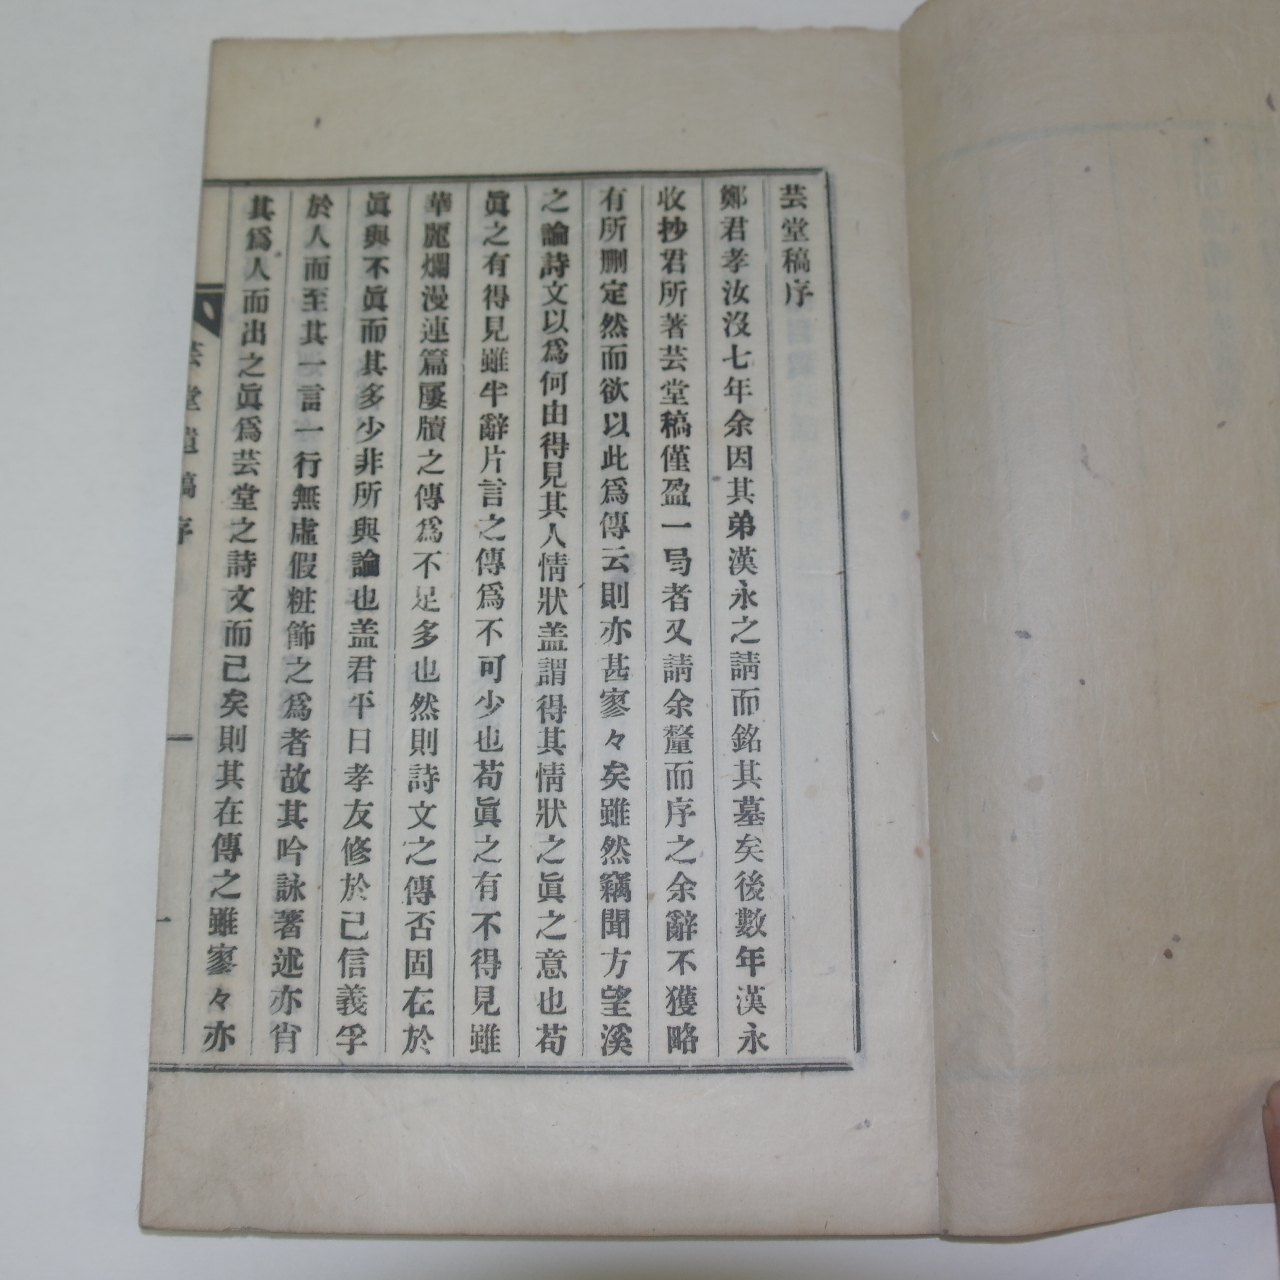 芸堂稿序
鄭君孝汝沒七年余因其弟漢永之請而銘其墓矣後數年漢永
收抄君所著芸堂稿僅盈一局者又請余釐而序之余辭不獲略
有所刪定然而欲以此爲傳云則亦甚寥々矣雖然竊聞方望溪
之論詩文以爲何由得見其人情狀盖謂得其情狀之眞之意也苟
眞之有得見雖半辭片言之傳爲不可少也苟眞之有不得見雖
華麗爛漫連篇屢牘之傳爲不足多也然則詩文之傳否固在於
眞與不眞而其多少非所與論也盖君平日孝友修於己信義孚
於人而至其一言一行無虛假粧飾之爲者故其吟詠著述亦肖
其爲人而出之眞爲芸堂之詩文而已矣則其在傳之雖寥々亦
芸堂遺稿序
一